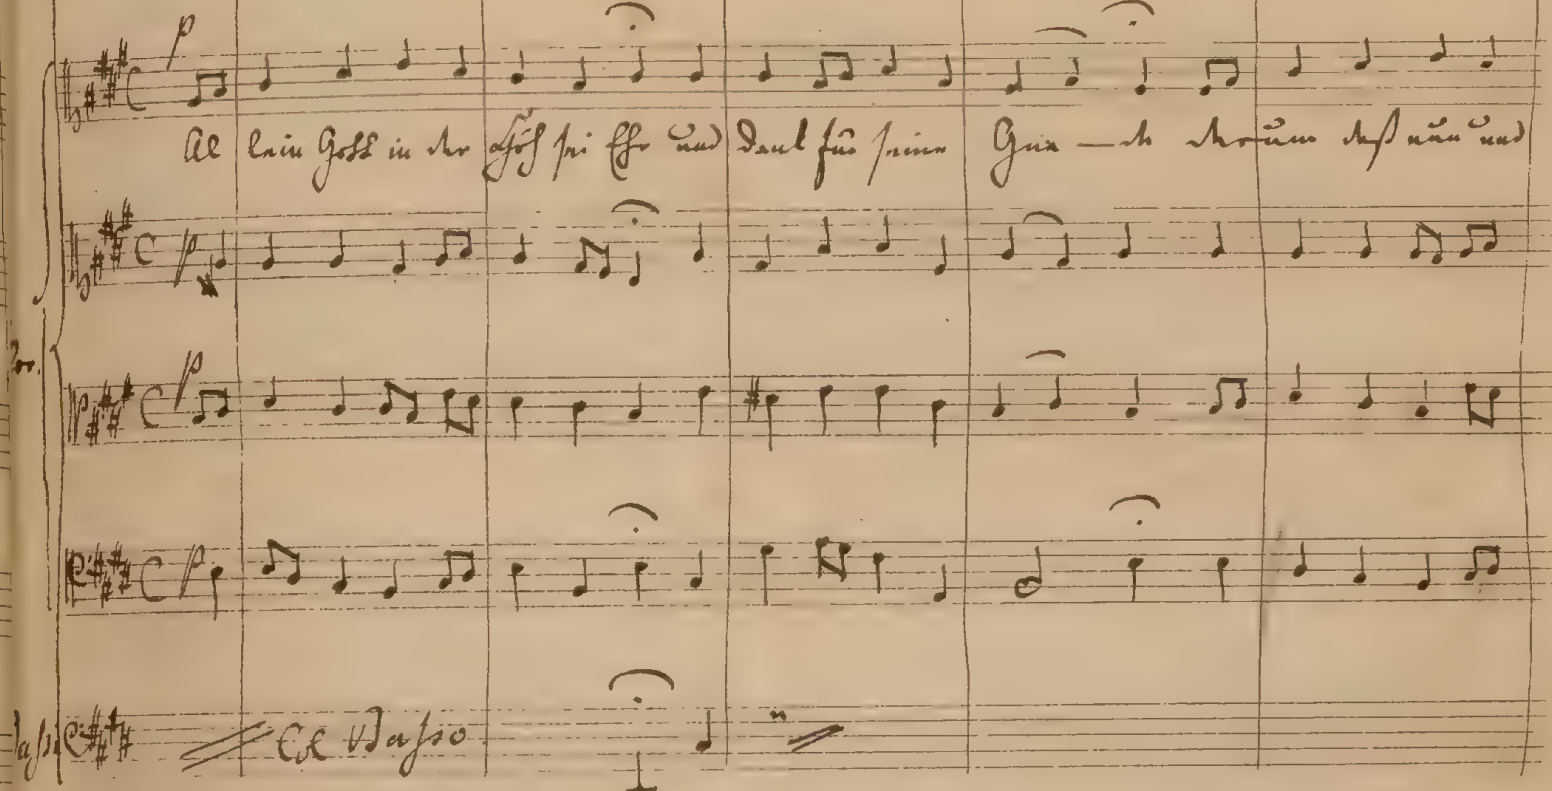 p
Al lein Gott in der Höh sei Ehr und Dank für seine Gna — de darum daß nun und
p
p
p
Col Basso